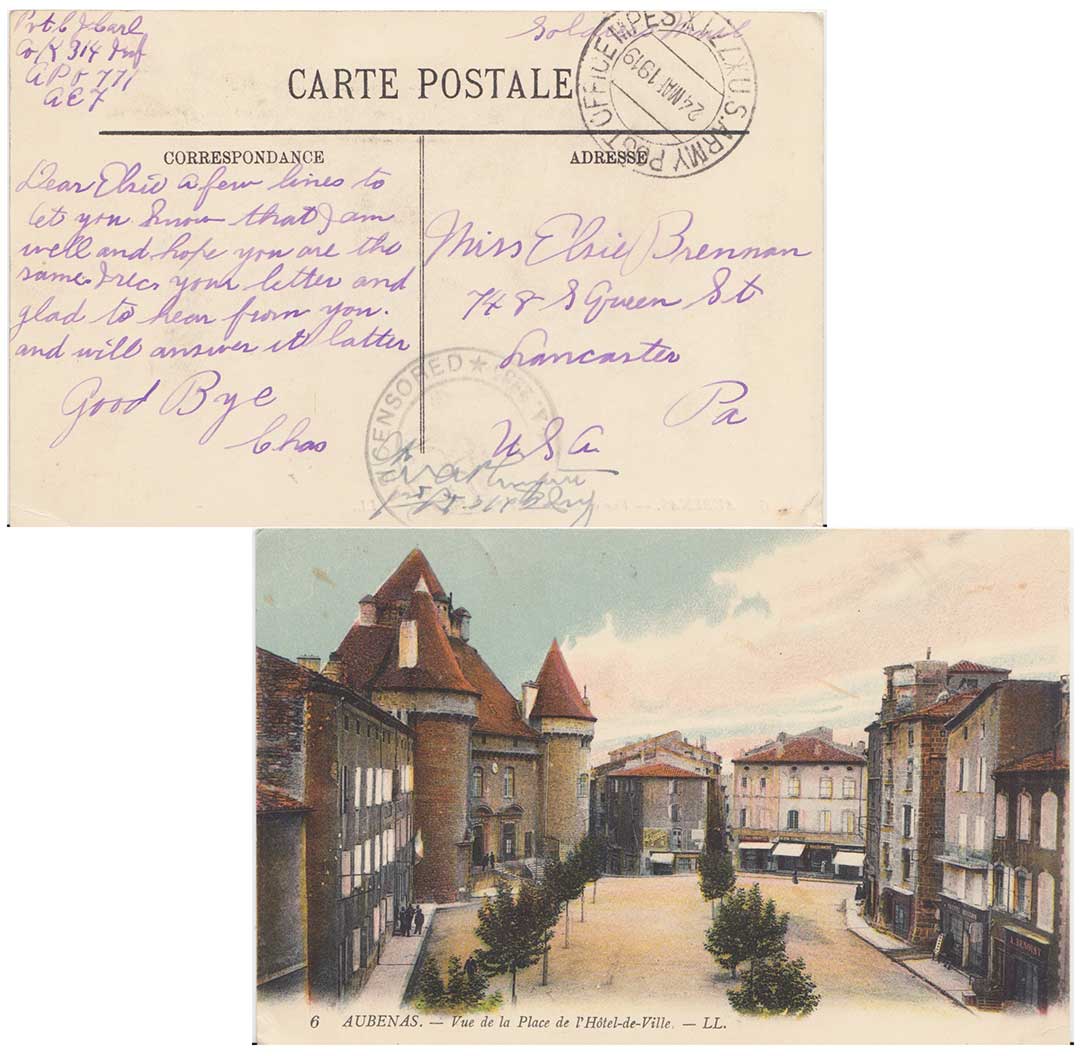 Pvt. C J Carl
Co K 314 Inf
A P O 771
A E F
Soldiers Mail
CARTE POSTALE
U.S. ARMY POST OFFICE M.P.E.S.
24 MAR 1919
CORRESPONDANCE
ADRESSE
Dear Elsie a few lines to
let you know that I am
well and hope you are the
same. I rec. your letter and
glad to hear from you.
and will answer it latter
Good Bye
Chas
Miss Elsie Brennan
748 S Queen St
Lancaster
Pa
U S A
CENSORED
6 AUBENAS. — Vue de la Place de l'Hôtel-de-Ville. — LL.